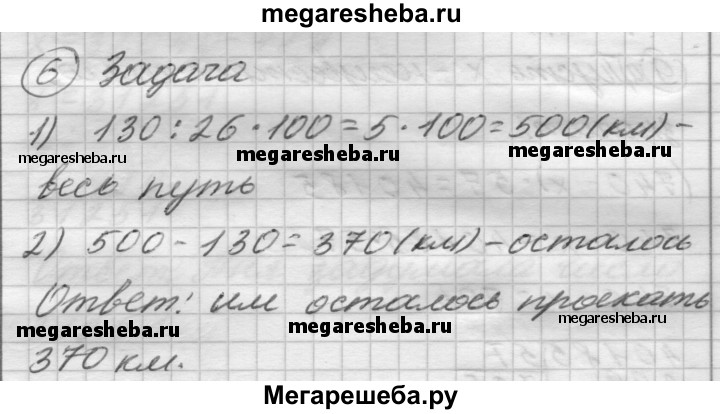 megaresheba.ru
6 Задача
1) 130 : 26 · 100 = 5 · 100 = 500 (км) –
megaresheba.ru megaresheba.ru megaresheba.ru
весь путь
2) 500 – 130 = 370 (км) – осталось
Ответ: им осталось проехать
megaresheba.ru megaresheba.ru megaresheba.ru
370 км.
Мегарешеба.ру